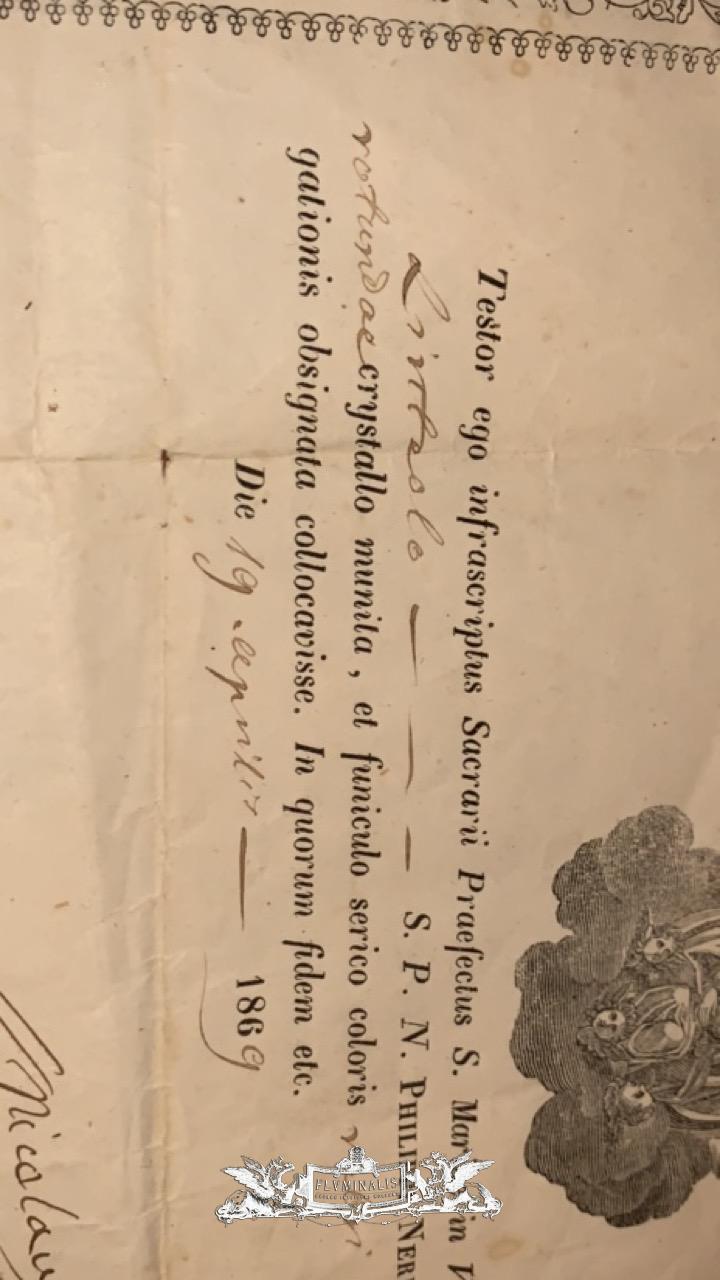 Testor ego infrascriptus Sacrarii Praefectus S. Mar in V
Linteolo — — — S. P. N. PHILIP NERI
rotundae crystallo munita, et funiculo serico coloris
gationis obsignata collocavisse. In quorum fidem etc.
Die 19 aprilis — 1869
Nicolau
FLVMINALIS